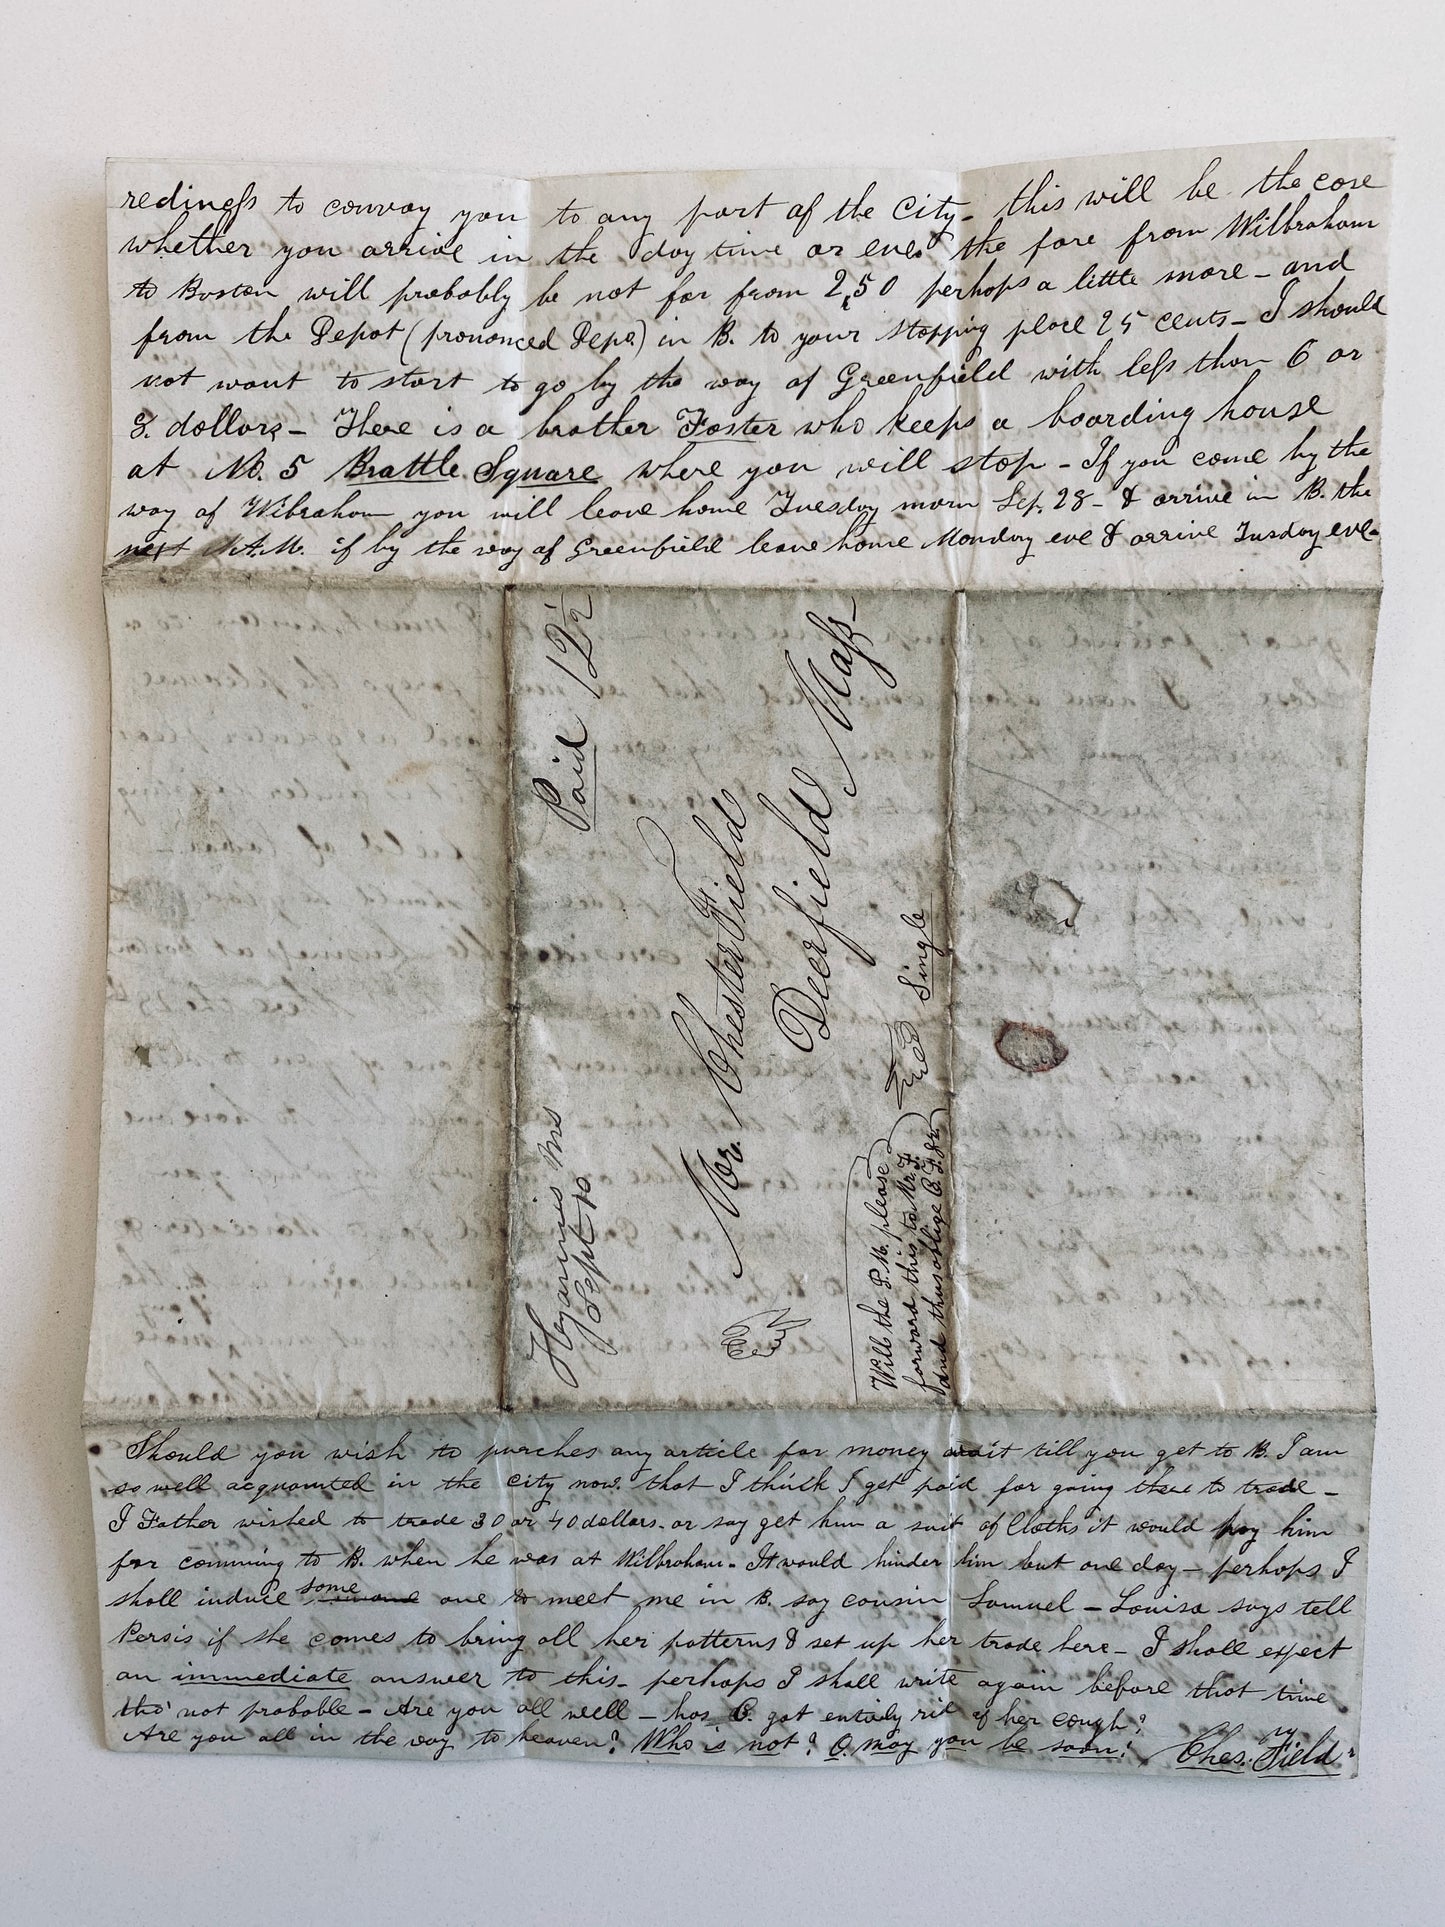 rediness to convay you to any part of the City - this will be the case
whether you arrive in the day time or eve. the fare from Wilbraham
to Boston will probably be not far from 2,50 perhaps a little more - and
from the Depot (prononced Depo.) in B. to your stopping place 25 cents - I should
not want to start to go by the way of Greenfield with less than 6 or
8. dollars - There is a brother Foster who keeps a boarding house
at No. 5 Brattle Square where you will stop - If you come by the
way of Wibraham you will leave home Tuesday morn Sep. 28 - & arrive in B. the
next A.M. if by the way of Greenfield leave home Monday eve & arrive Tusday eve -
Paid 12½
Hyannis Ms
Sept 10
Mr. Chester Field
Deerfield Mass
Single
Will the P. M. please
forward this to Mr F.
and thus oblige C. F. Jr.
Should you wish to purches any article for money wait till you get to B. I am
so well acquainted in the City now. that I think I get paid for going there to trade -
I Father wished to trade 30 or 40 dollars. or say get him a suit of Cloths it would pay him
for comming to B. when he was at Wilbraham - It would hinder him but one day - perhaps I
shall induce some one to meet me in B. say cousin Samuel - Louisa says tell
Persis if she comes to bring all her patterns & set up her trade here - I shall expect
an immediate answer to this - perhaps I shall write again before that time
tho' not probable - Are you all well - has C. got entirly rid of her cough?
Are you all in the way to heaven? Who is not? O. may you be soon! Ches. Field Jr